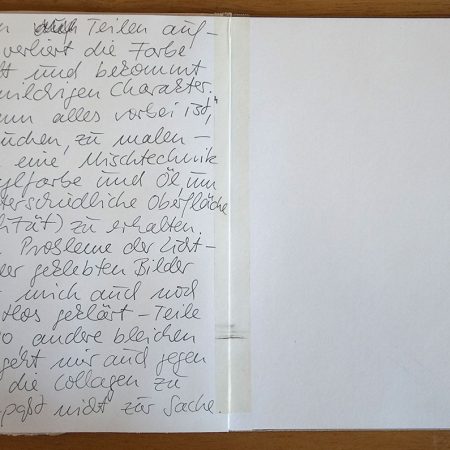 n Teilen auf-
verliert die Farbe
und bekommt
milchigen Charakter.
nn alles vorbei ist,"
uchen, zu malen –
eine Mischtechnik
ylfarbe und Öl, um
terschiedliche Oberfläche
lität) zu erhalten.
Probleme der Licht-
der geklebten Bilder
mich auch noch
tlos geklärt – Teile
o andere bleichen
geht mir auch gegen
die Collagen zu
paßt nicht zur Sache.